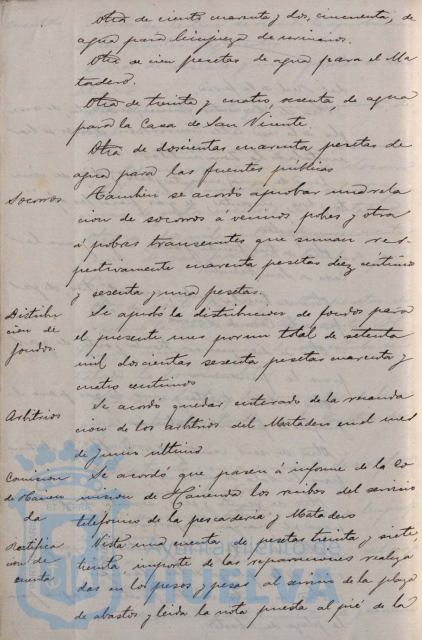 Otra de ciento cuarenta y dos, cincuenta, de
agua para limpieza de urinarios.
Otra de cien pesetas de agua para el Ma
tadero.
Otra de treinta y cuatro, sesenta, de agua
para la Casa de San Vicente.
Otra de doscientas cuarenta pesetas de
agua para las fuentes públicas
Socorros
Tambien se acordó aprobar una rela
cion de socorros á vecinos pobres y otra
á pobres transeuntes que suman res-
pectivamente cuarenta pesetas diez centimos
y sesenta y una pesetas.
Distribu
cion de
fondos.
Se aprobó la distribucion de fondos para
el presente mes por un total de setenta
mil doscientas sesenta pesetas cuarenta y
cuatro centimos
Arbitrios
Se acordó quedar enterado de la recauda
cion de los arbitrios del Matadero en el mes
de Junio último
Comision
de Hacien
da
Se acordó que pasen á informe de la Co
mision de Hacienda los recibos del servicio
telefonico de la pescaderia y Matadero
Rectifica
cion de
cuenta
Vista una cuenta de pesetas treinta y siete,
treinta importe de las reparaciones realiza
das en los pesos y pesas al servicio de la plaza
de abastos y leida la nota puesta al pié de la
Ayuntamiento de
HUELVA